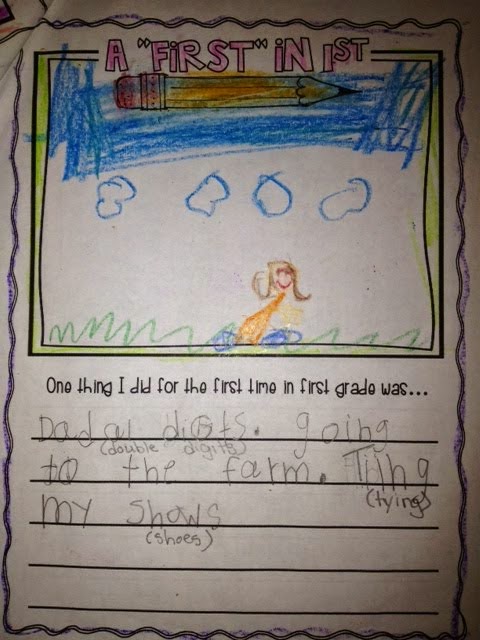 A "FIRST" IN 1ST
One thing I did for the first time in first grade was...
Dadal digts. going
(double digits)
to the farm. Tiing
(tying)
my shows
(shoes)